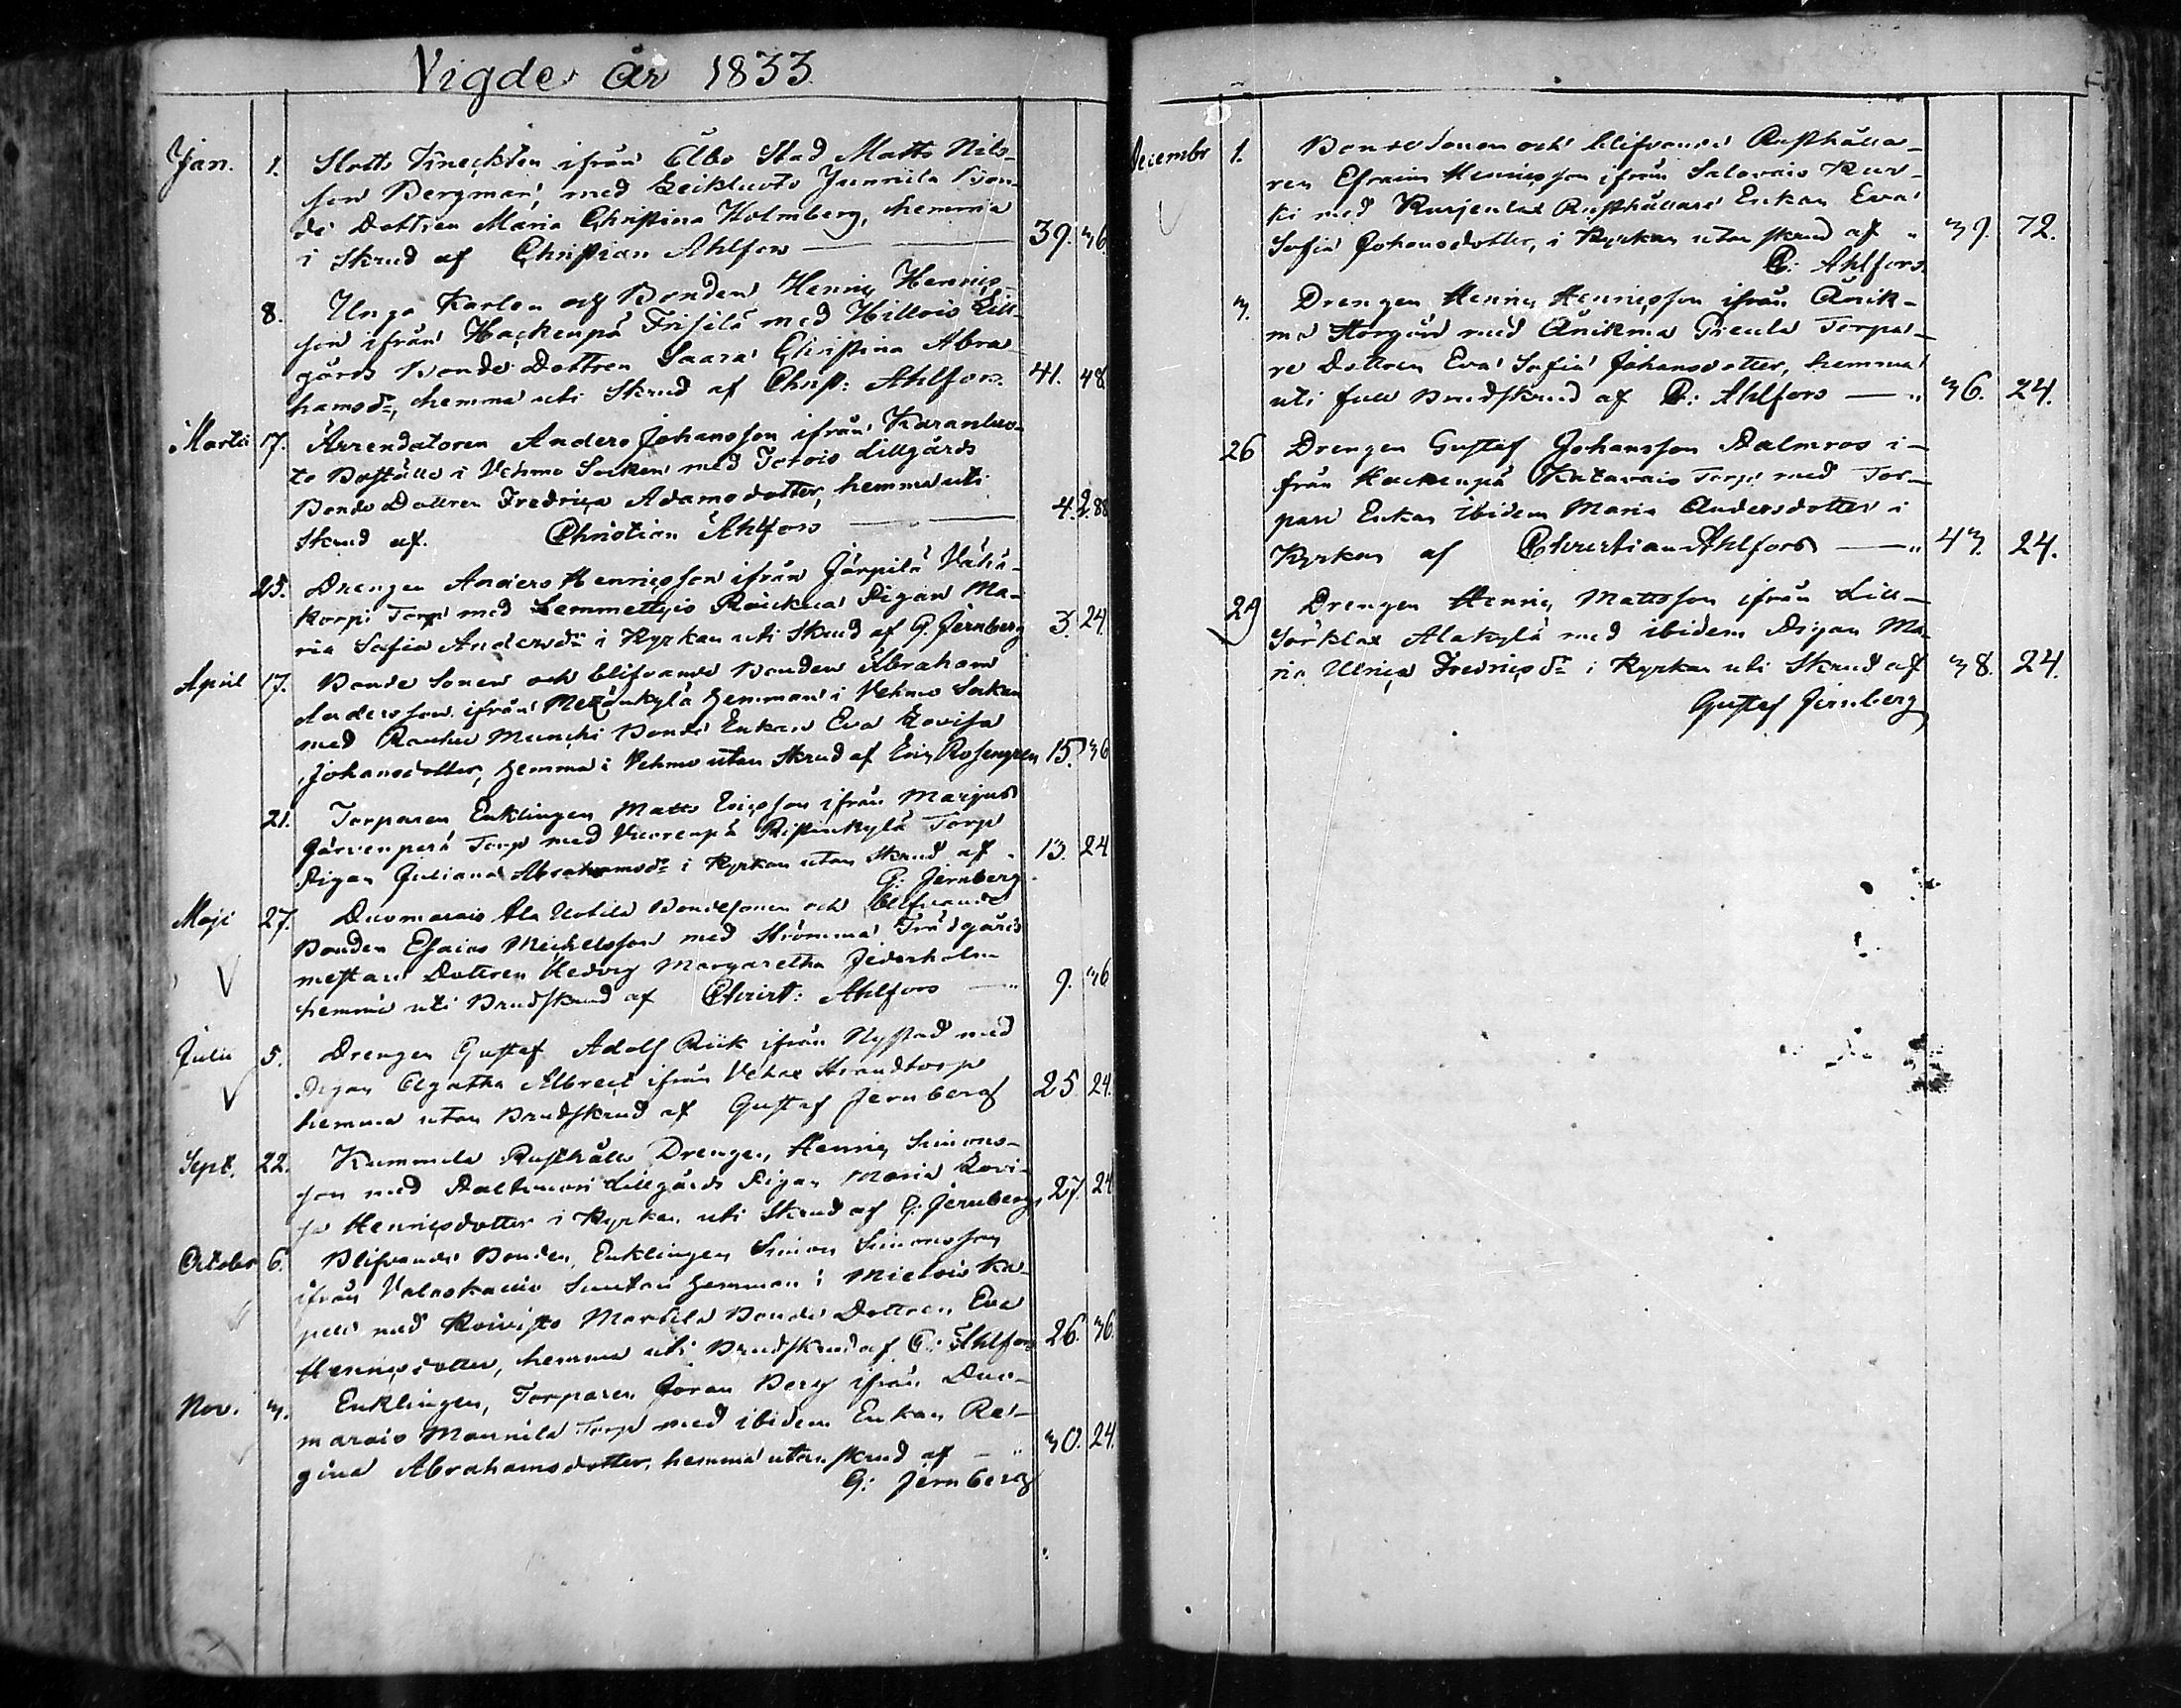 Vigde år 1833.
Jan. 1. Slotts Kneckten ifrån Åbo Stad Matts Nils-
son Bergman, med Leikluoto Junnila Bon-
de Dottren Maria Christina Holmberg, hemma
i Skrud af Christian Ahlfors 39. 36.
8. Unga Karlen och Bonden Henric Henrics-
son ifrån Hackenpä Frisilä med Hillois Lill-
gårds Bonde Dottren Saara Christina Abra-
hamsdr, hemma uti Skrud af Christ: Ahlfors. 41. 48.
Martii 17. Arrendatoren Anders Johansson ifrån Karanluo-
to Boställe i Vehmo Socken med Lillgårds
Bonde Dottren Fredrica Adamsdotter, hemma uti
Skrud af. Christian Ahlfors 4. 2.88
25. Drengen Anders Henricsson ifrån Järpilä Vähä-
korpi Torp med Lemmettyis Pigan Ma-
ria Sofia Andersdr i Kyrkan uti Skrud af G. Jernberg 3. 24.
April 17. Bonde Sonen och blifvande Bonden Abraham
Andersson ifrån hemman i Vehmo Socken
med Rauhu Munchi Bonde Enkan Eva Lovisa
Johansdotter, hemma i Vehmo utan Skrud af Eric Rosengren 15. 36
21. Torparen Enklingen Matts Ericsson ifrån Marjus
Järvenperä Torp med Vuorenpä Ristinkylä Torp
Pigan Juliana Abrahamsdr i Kyrkan utan Skrud af 13. 24
G: Jernberg
Maji 27. Dusmarais Ala Uotila Bondesonen och blifvande
Bonden Esaias Michelsson med Strömma Trädgårds
mestare Dottren Hedvig Margaretha Jederholm
hemma uti Brudskrud af Christ: Ahlfors 9. 36
Julii 5. Drengen Gustaf Adolf Rick ifrån Nystad med
Pigan Agatha Albrect ifrån Vehax Strandtorp
hemma utan Brudskrud af Gustaf Jernberg 25. 24.
Sept. 22. Kummila Rusthålls Drengen, Henric Simons-
son med Lillgårds Pigan Maria Lovi-
sa Henricsdotter i Kyrkan uti Skrud af G: Jernberg 27. 24
October 6. Blifvande Bonden, Enklingen Simon Simonsson
ifrån Hemman i Mietois Ka-
pell med Koivisto Martila Bonde Dottren Eva
Henricsdotter, hemma uti Brudskrud af C: Ahlfors 26. 36.
Nov. 3. Enklingen, Torparen Göran Berg ifrån Dus-
marais Mannila Torp med ibidem Enkan Re-
gina Abrahamsdotter, hemma utan skrud af 30. 24.
G: Jernberg
Decembr 1. Bondesonen och blifvande Rusthålla-
ren Efraim Henricsson ifrån Salovais Kur-
ki med Kurjenlax Rusthållare Enkan Eva
Sofia Johansdotter, i Kyrkan utan skrud af 39. 72.
C: Ahlfors.
3. Drengen Henric Henricsson ifrån Änik-
ma Storgård med Änikma Torpa-
re Dottren Eva Sofia Johansdotter, hemma
uti full Brudskrud af C: Ahlfors 36. 24.
26 Drengen Gustaf Johansson Palmros i-
från Hackenpä Katavais Torp med Tor-
pare Enkan ibidem Maria Andersdotter i
Kyrkan af Christian Ahlfors 43. 24.
29 Drengen Henric Mattsson ifrån Lill-
Sörklax Alakylä med ibidem Pigan Ma-
ria Ulrica Fredricsdr i Kyrkan uti Skrud af 38. 24.
Gustaf Jernberg